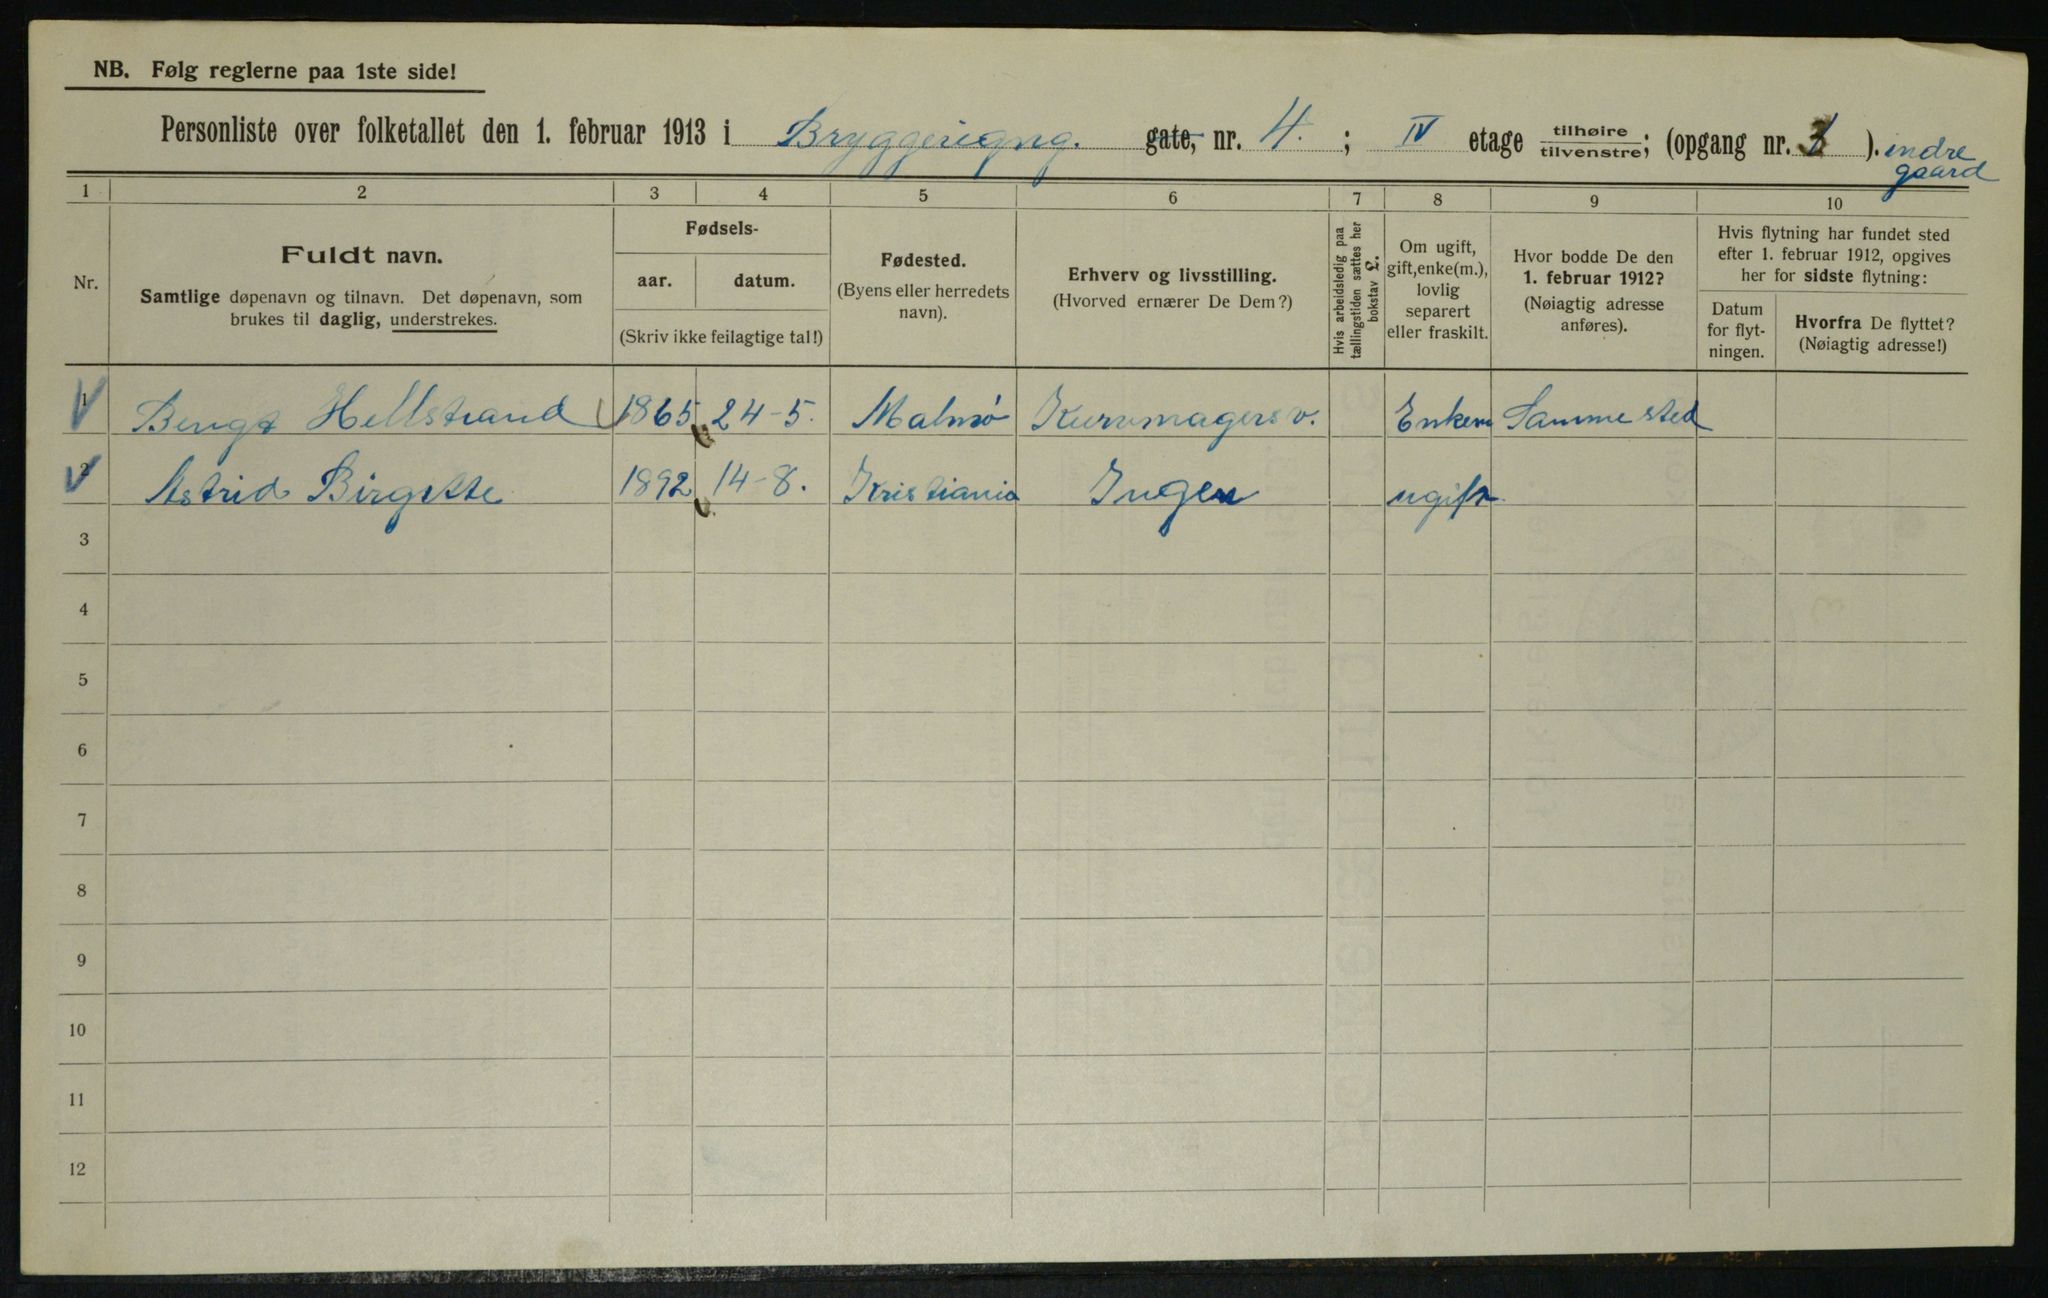 NB. Følg reglerne paa 1ste side!
Personliste over folketallet den 1. februar 1913 i Bryggerigng. gate, nr. 4. ; IV etage tilhøire tilvenstre; (opgang nr. 3 ). indre gaard
1 2 3 4 5 6 7 8 9 10
Nr.
Fuldt navn.
Samtlige døpenavn og tilnavn. Det døpenavn, som
brukes til daglig, understrekes.
Fødsels-
aar. datum.
(Skriv ikke feilagtige tal!)
Fødested.
(Byens eller herredets
navn).
Erhverv og livsstilling.
(Hvorved ernærer De Dem?)
Hvis arbeidsledig paa
tællingstiden sættes her
bokstav L.
Om ugift,
gift, enke(m.),
lovlig
separert
eller fraskilt.
Hvor bodde De den
1. februar 1912?
(Nøiagtig adresse
anføres).
Hvis flytning har fundet sted
efter 1. februar 1912, opgives
her for sidste flytning:
Datum
for flyt-
ningen.
Hvorfra De flyttet?
(Nøiagtig adresse!)
1 Bengt Hellstrand 1865 24-5. Malmø Kurvmagersv. Enkem Samme sted
2 Astrid Birgitte 1892 14-8. Kristiania Ingen ugift
3
4
5
6
7
8
9
10
11
12